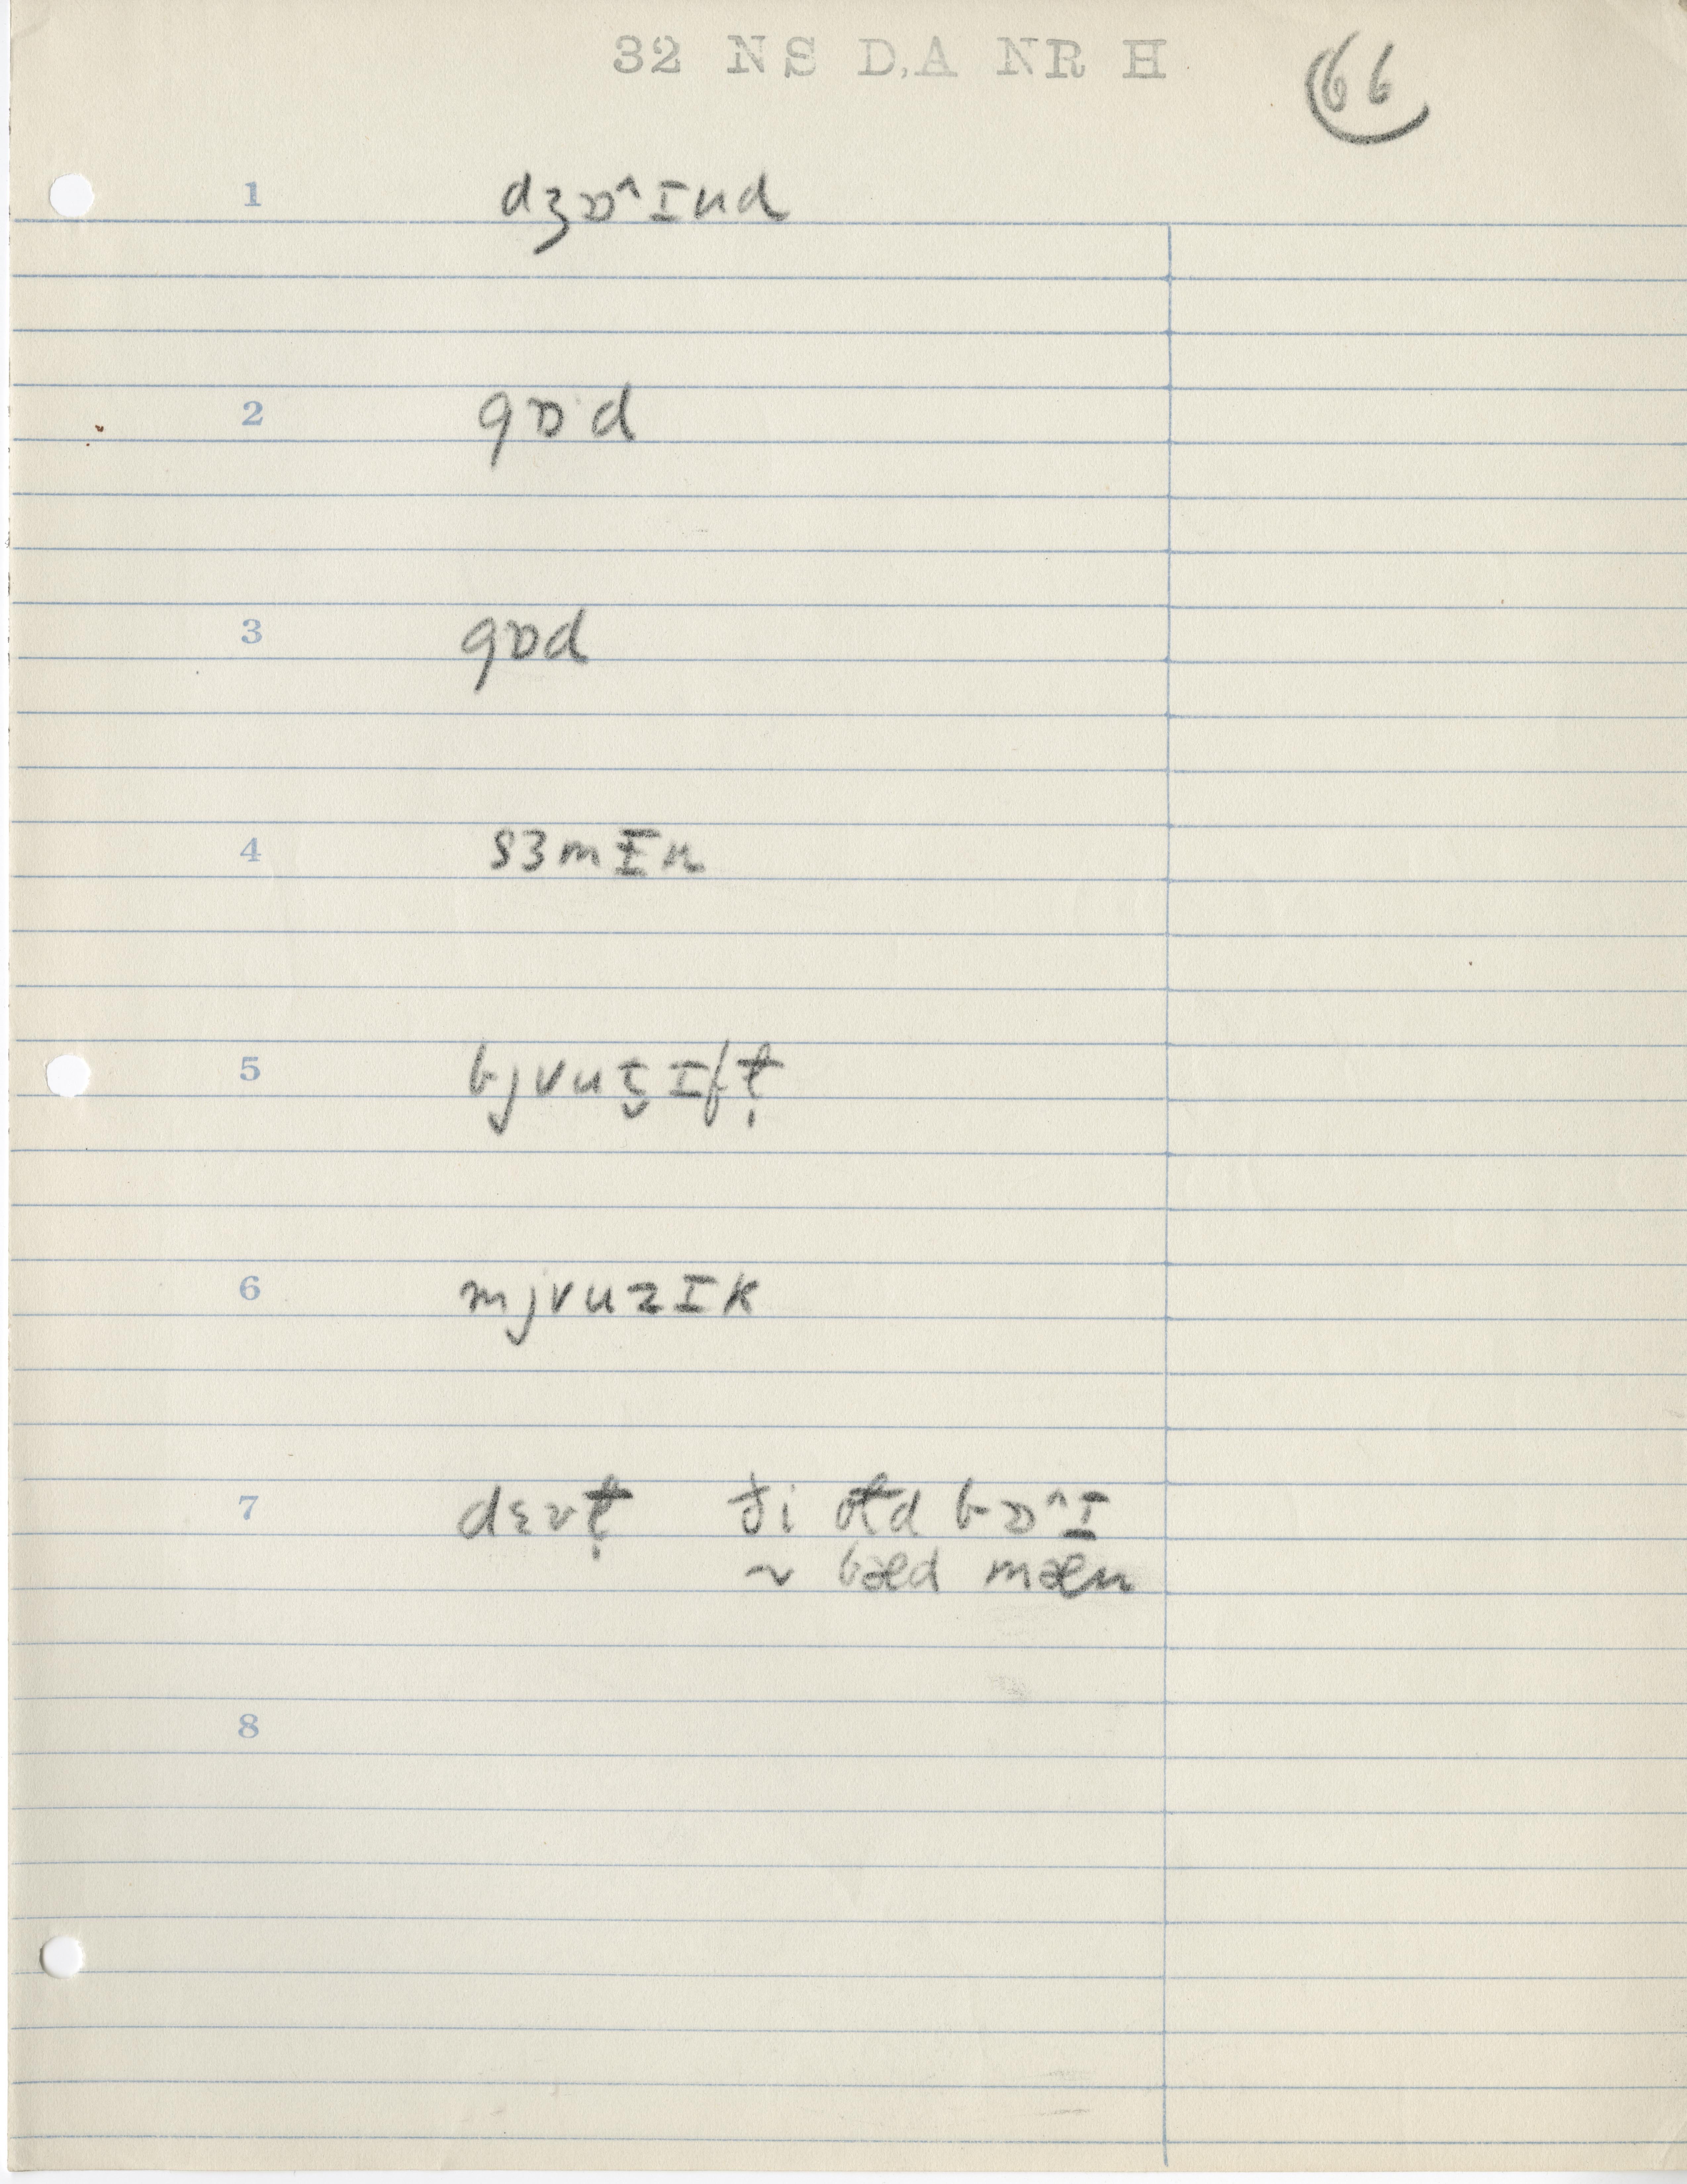 32 NS D,A NR H
66
1 dʒɒ^ɪnd
2 gɒ·d
3 gɒd
4 sɜmɪ̵n
5 bjʊuɾ̬ɪfɫ̩
6 mjʊuzɪk
7 dɛvɫ̩ ði oɫd bɒ^ɪ
~ bæd mæn
8